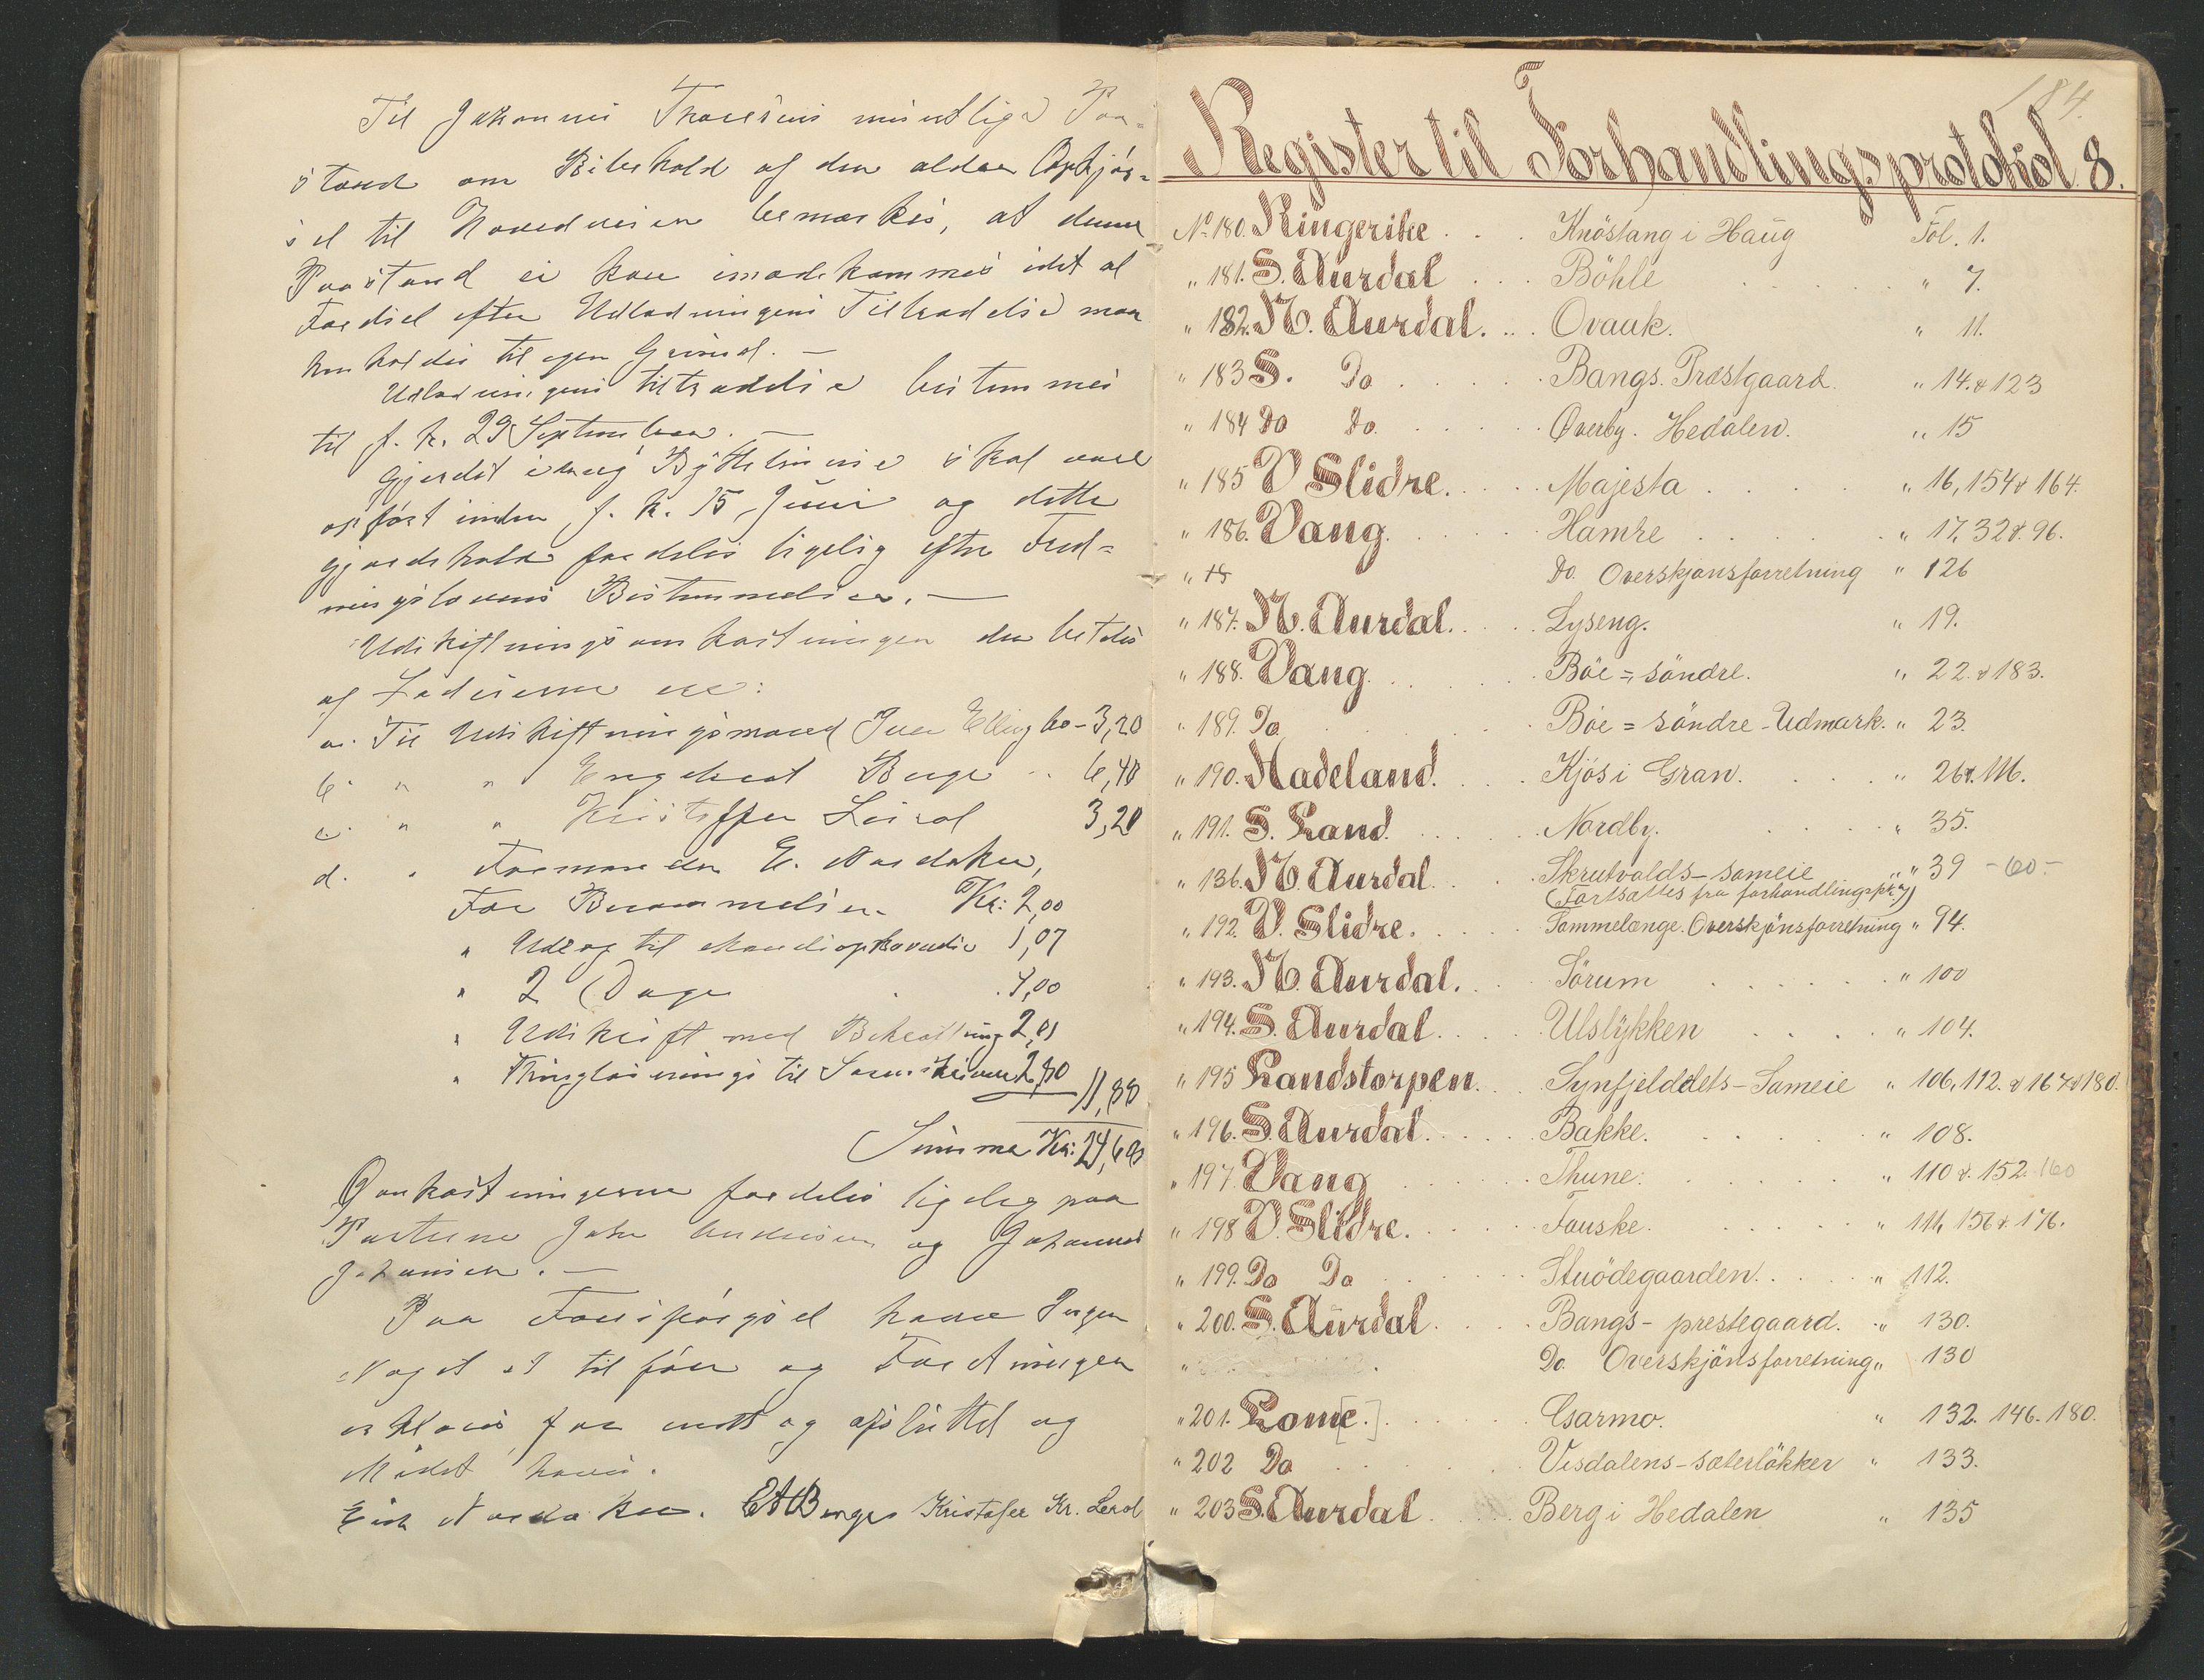 Til Johannes mundtlige Paa-
stand om Bibehold af den aldre Opkjör-
sel til Hovedveien bemærkes, at denne
Paastand ei kan imødekommes idet al
Færdsel efter Udlodningens Tiltrædelse maa
henholdes til egen Grund. —
Udlodningens tiltrædelse bestemmes
til f. k. 29 September. —
Gjerdet i Byttelinine skal være
opfört inden f. k. 15 Juni og dette
gjærdehold fordeles ligelig efter Fred-
ningslovens Bestemmelser. —
Udskiftningsomkostningen der betales
af er:
a. Til Udskiftningsmand Iver Ellingbo - 3,20
b. " " Engebret Berge .. 6,40
c. " " Kristoffer Leirol 3,20
d. " Formanden E. Nordaker,
For Berammelsen Kr: 2,00
" Udtog til 1,07
" 2 Dage . 4,00
" Udskrift med Bekræftning 2,01
" Thinglæsnings til Sorenskriveren 2,80
11,88
Summa Kr: 24,68
Omkostningerne fordeles ligelig paa
Parterne John Andersen og Johannes
Johansen. —
Paa Forespörgsel havde Ingen
Noget at tilföie og Forretningen
erklæres for endt og afsluttet og
Mödet hævet.
Erik Nordaker. EABerge Kristofer Kr. Lerol
184.
Register til Forhandlingsprotokol 8.
No 180. Ringerike . . . Knöstang i Haug Fol. 1.
" 181. S. Aurdal . . . Böhle . . . " 7.
" 182. N. Aurdal. . . Ovauk. " 11.
" 183 S. Do . . . Bangs. Præstgaard. " 14. & 123
" 184 Do Do. . . . Överby. Hedalen. " 15
" 185 V Slidre. . . . Majesta . . . " 16, 154 & 164.
" 186. Vang. . . . Hamre . . . " 17, 32 & 96.
" 18 Do. Overskjönsforretning " 126
" 187. N. Aurdal. . . Lyseng. " 19.
" 188. Vang . . . Böe = söndre. " 22. & 183.
" 189. Do . . . Böe = söndre - Udmark. " 23.
" 190. Hadeland. . . Kjös i Gran. . . " 26 & 116.
" 191. S. Land. . . . Nordby. . . . " 35.
" 136. N. Aurdal. . . Skrutvolds - sameie " " 39 - 60 -
(Fortsættes fra forhandlingspr. 7)
" 192. V. Slidre. . . Tommelænge. Overskjönsforretning " 94.
" 193. N. Aurdal. . . Sörum . . . " 100
" 194. S. Aurdal. . . Ulslykken . . . " 104.
" 195 Landstorpen. . . Synfjelddets - Sameie " 106, 112. & 167 & 180.
" 196. S. Aurdal. . . Bakke. . . . " 108.
" 197. Vang . . . Thune: . . . " 110 & 152. 160
" 198 V. Slidre. . . Fauske. . . . " 111, 156 & 176.
" 199. Do Do . . . Stuödegaarden. . . " 112.
" 200. S. Aurdal. . . Bangs - prestegaard. " 130.
" Do. Overskjönsforretning " 130
" 201. Lome[.] . . . Gsarmo. " 132. 146. 180.
" 202 Do . . . Visdalens - sæterlökker " 133.
" 203 S. Aurdal . . . Berg i Hedalen " 135